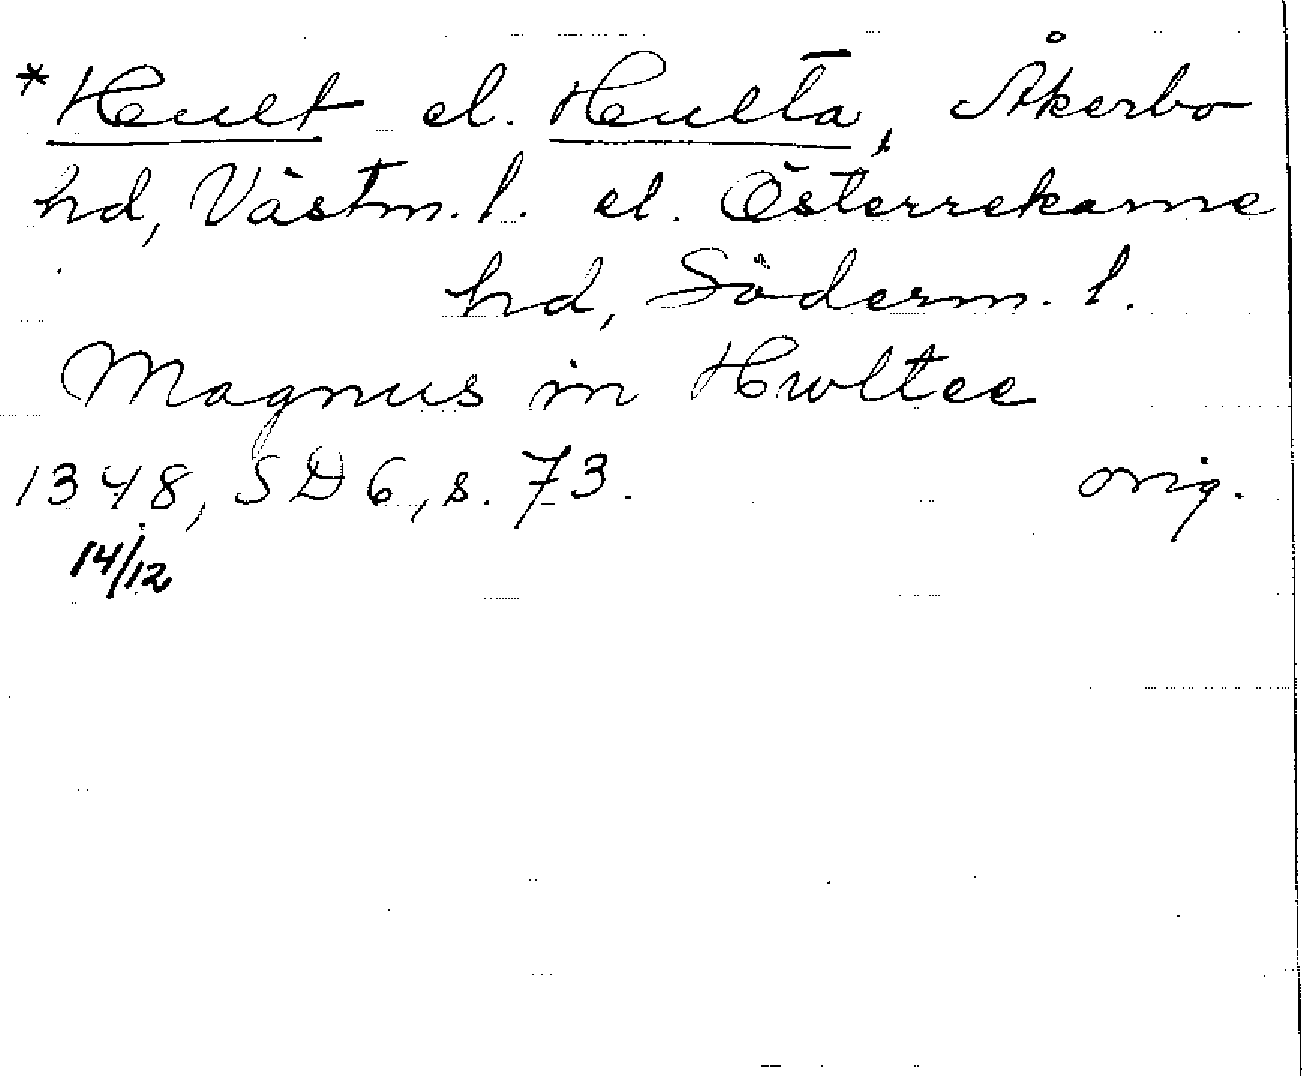 *Hult el. Hulta, Åkerbo
hd, Västm. l. el. Österrekarne
hd, Söderm. l.
Magnus in Hwltee
1348, SD 6, s. 73. orig.
14/12